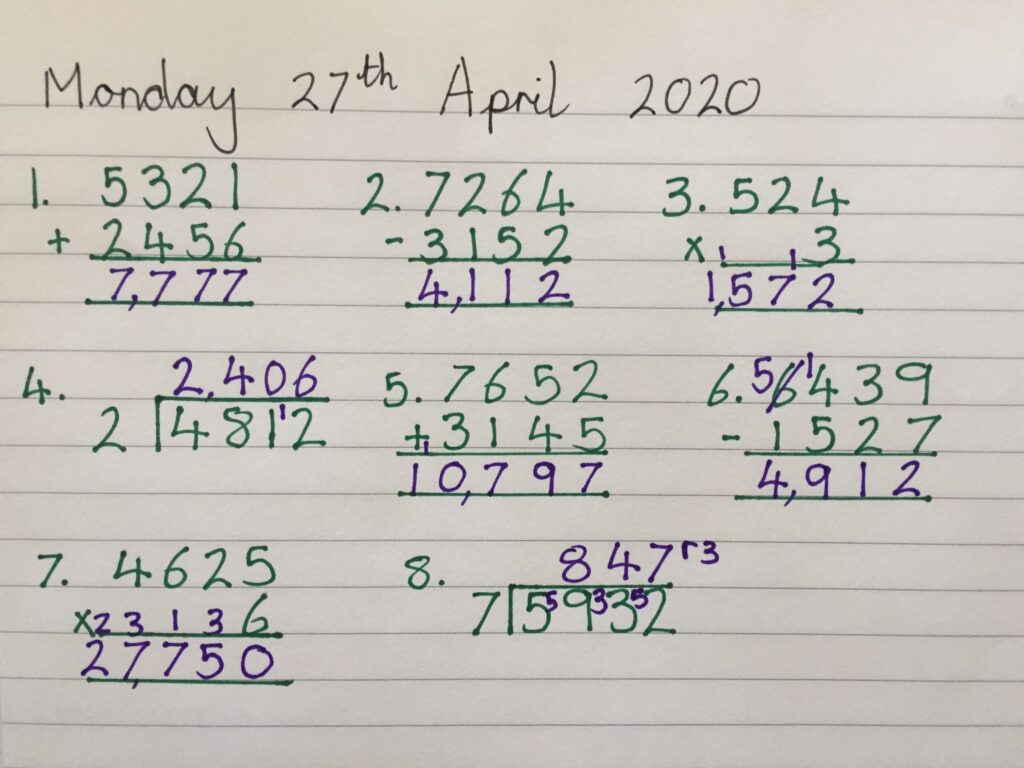 Monday 27th April 2020
1. 5321 2. 7264 3. 524
+ 2456 - 3152 x 1 1 3
7,777 4,112 1,572
4. 2,406 5. 7652 6. 5 6 1 439
2 481 1 2 + 1 3145 - 1527
10,797 4,912
7. 4625 8. 847 r3
x 2 3 1 3 6 7 5 5 9 3 3 5 2
27,750